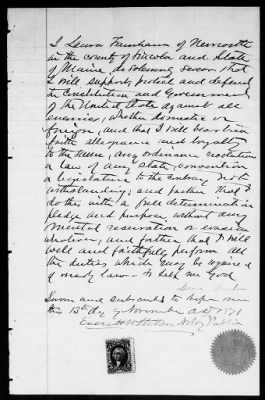 I Farnham of Newcastle
in the county of Lincoln and State
of Maine, do solemnly swear that
I will support, protect and defend
the Constitution and Government
of the United States against all
enemies, whether domestic or
foreign, and that I will bear true
faith allegiance and loyalty
to the same, any ordinance resolution
or law of any State convention
or legislature to the contrary not
withstanding; and further that I
do this with a full determination
pledge and purpose, without any
mental reservation or evasion
whatever, and further that I will
well and faithfully perform all
the duties which may be required
of me by law - So help me God
Farnham
Sworn and subscribed to before me
this 13th day of November AD 1871
Notary Public